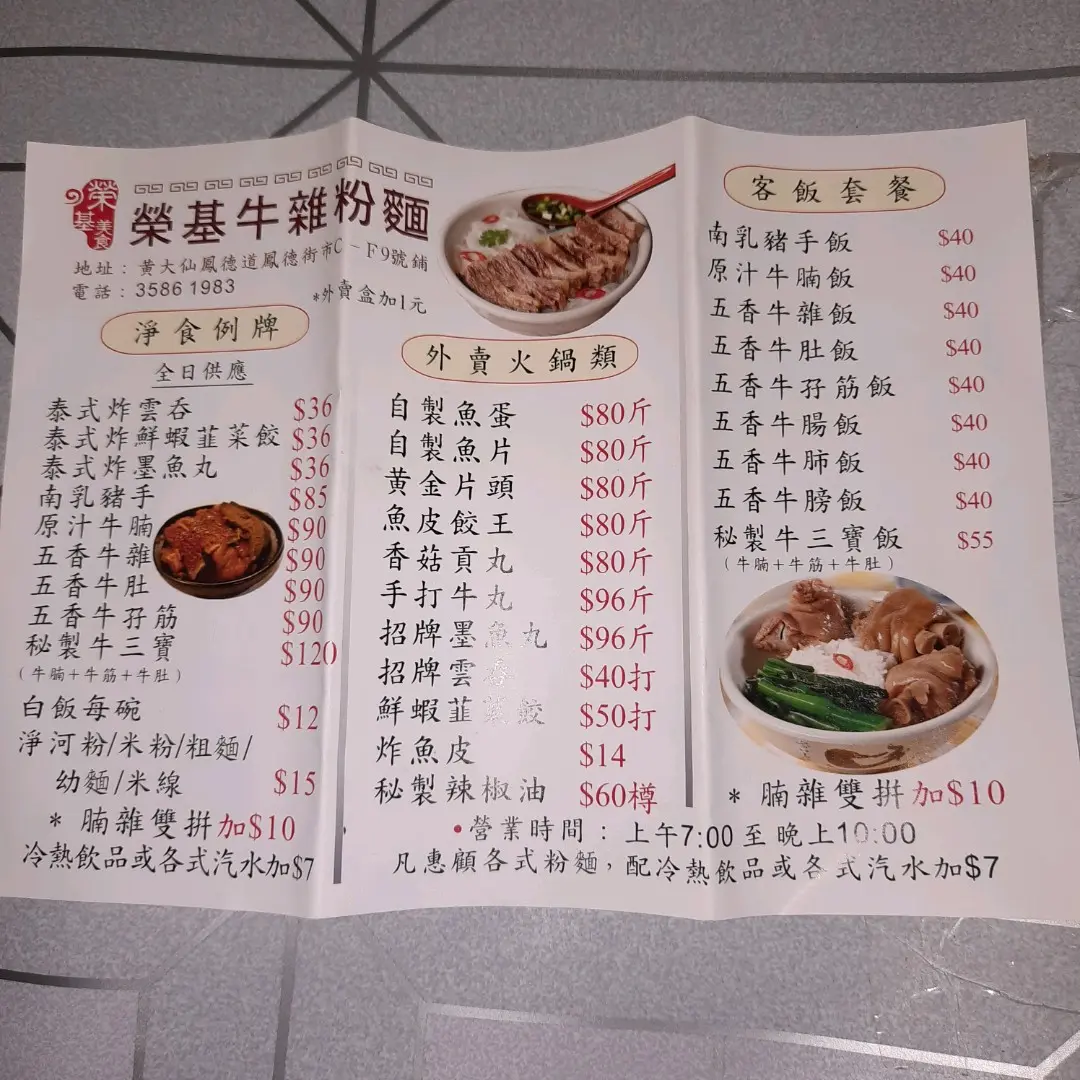 榮基美食
榮基牛雜粉麵
地址：黃大仙鳳德道鳳德街市C－F9號鋪
電話：3586 1983
*外賣盒加1元
淨食例牌
全日供應
泰式炸雲吞 $36
泰式炸鮮蝦韮菜餃 $36
泰式炸墨魚丸 $36
南乳豬手 $85
原汁牛腩 $90
五香牛雜 $90
五香牛肚 $90
五香牛孖筋 $90
秘製牛三寶 $120
（牛腩＋牛筋＋牛肚）
白飯每碗 $12
淨河粉/米粉/粗麵/
幼麵/米線 $15
* 腩雜雙拼加$10
冷熱飲品或各式汽水加$7
外賣火鍋類
自製魚蛋 $80斤
自製魚片 $80斤
黃金片頭 $80斤
魚皮餃王 $80斤
香菇貢丸 $80斤
手打牛丸 $96斤
招牌墨魚丸 $96斤
招牌雲吞 $40打
鮮蝦韮菜餃 $50打
炸魚皮 $14
秘製辣椒油 $60樽
客飯套餐
南乳豬手飯 $40
原汁牛腩飯 $40
五香牛雜飯 $40
五香牛肚飯 $40
五香牛孖筋飯 $40
五香牛腸飯 $40
五香牛肺飯 $40
五香牛膀飯 $40
秘製牛三寶飯 $55
（牛腩＋牛筋＋牛肚）
* 腩雜雙拼加$10
•營業時間：上午7:00至晚上10:00
凡惠顧各式粉麵，配冷熱飲品或各式汽水加$7